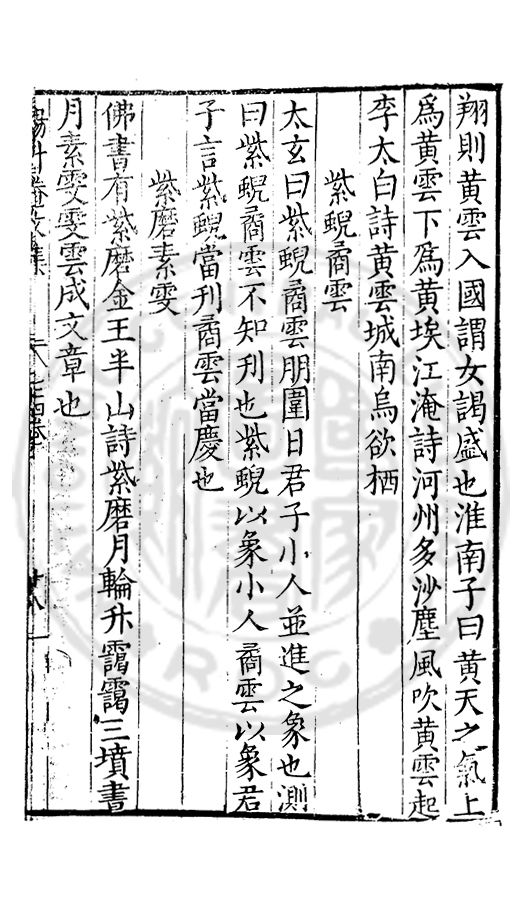 翔則黄雲入國謂女謁盛也淮南子曰黄天之氣上
爲黄雲下爲黄埃江淹詩河州多沙塵風吹黄雲起
李太白詩黄雲城南烏欲栖
紫蜺矞雲
太玄曰紫蜺矞雲朋圍日君子小人並進之象也測
曰紫蜺矞雲不知刋也紫蜺以象小人矞雲以象君
子言紫蜺當刋矞雲當慶也
紫磨素雯
佛書有紫磨金王半山詩紫磨月輪升靄靄三墳書
月素雯雯雲成文章也